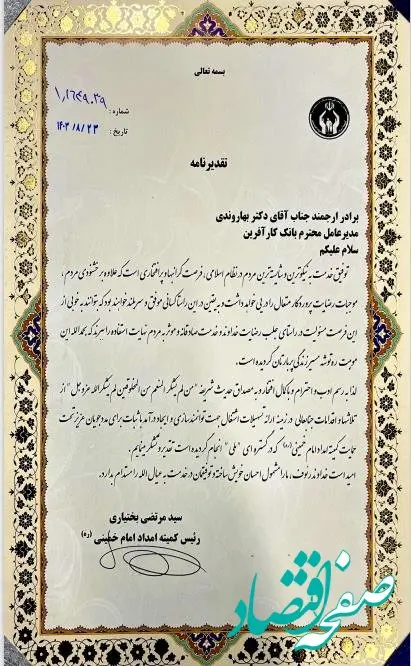 بسمه تعالی
شماره :
تاریخ : ۱۴۰۳/۸/۲۳
تقدیرنامه
برادر ارجمند جناب آقای دکتر بهاروندی
مدیرعامل محترم بانک کارآفرین
سلام علیکم
توفیق خدمت به نیکوترین و شایسته‌ترین مردم در نظام اسلامی، فرصت گرانبها و پرافتخاری است که علاوه بر خشنودی مردم،
موجبات رضایت پروردگار متعال را در پی خواهد داشت و به یقین در این راستا کسانی موفق و سربلند خواهند بود که توانند به خوبی از
این فرصت مسئولیت در راستای جلب رضایت خداوند و خدمت صادقانه و موثر به مردم نهایت استفاده را ببرند که بحمدالله این
موهبت ره توشه مسیر زندگی پربارتان گردیده است.
لذا به رسم ادب و احترام و با کمال افتخار و به مصداق حدیث شریفه "من لم یشکر المنعم من المخلوقین لم یشکر الله عزوجل" از
تلاشها و اقدامات جنابعالی در زمینه ارائه تسهیلات اشتغال جهت توانمندسازی و ایجاد درآمد با ثبات برای مددجویان عزیز تحت
حمایت کمیته امداد امام خمینی (ره) که در گستره ای "ملی" انجام گردیده است تقدیر و تشکر می‌نمایم.
امید است خداوند رئوف، ما را مشمول احسان خویش ساخته و توفیقتان در خدمت به عیال الله را مستدام بدارد.
سید مرتضی بختیاری
رئیس کمیته امداد امام خمینی (ره)
صفحه اقتصاد